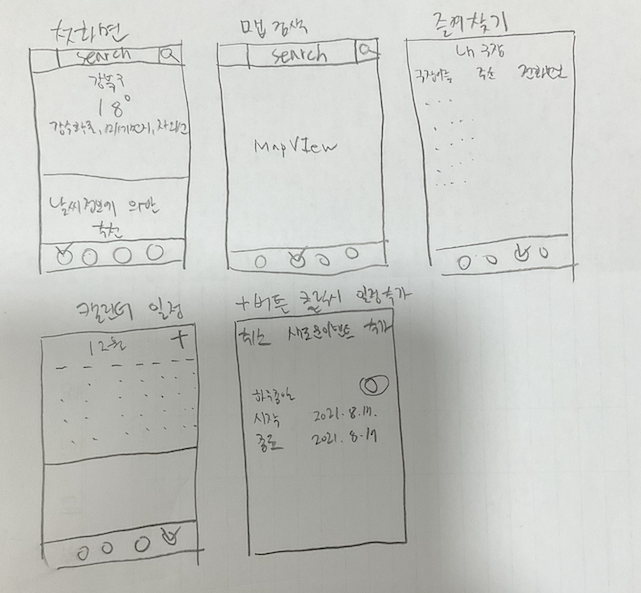 첫화면
search
강북구
18°
강수확률, 미세먼지, 자외선
날씨정보에 의한
추천
맵 검색
search
MapVIew
즐겨찾기
극장이름 주소 전화번호
캘린더 일정
12월
+
+버튼 클릭시 일정추가
취소 새로운이벤트 추가
하루종일
시작 2021.8.17.
종료 2021.8.17